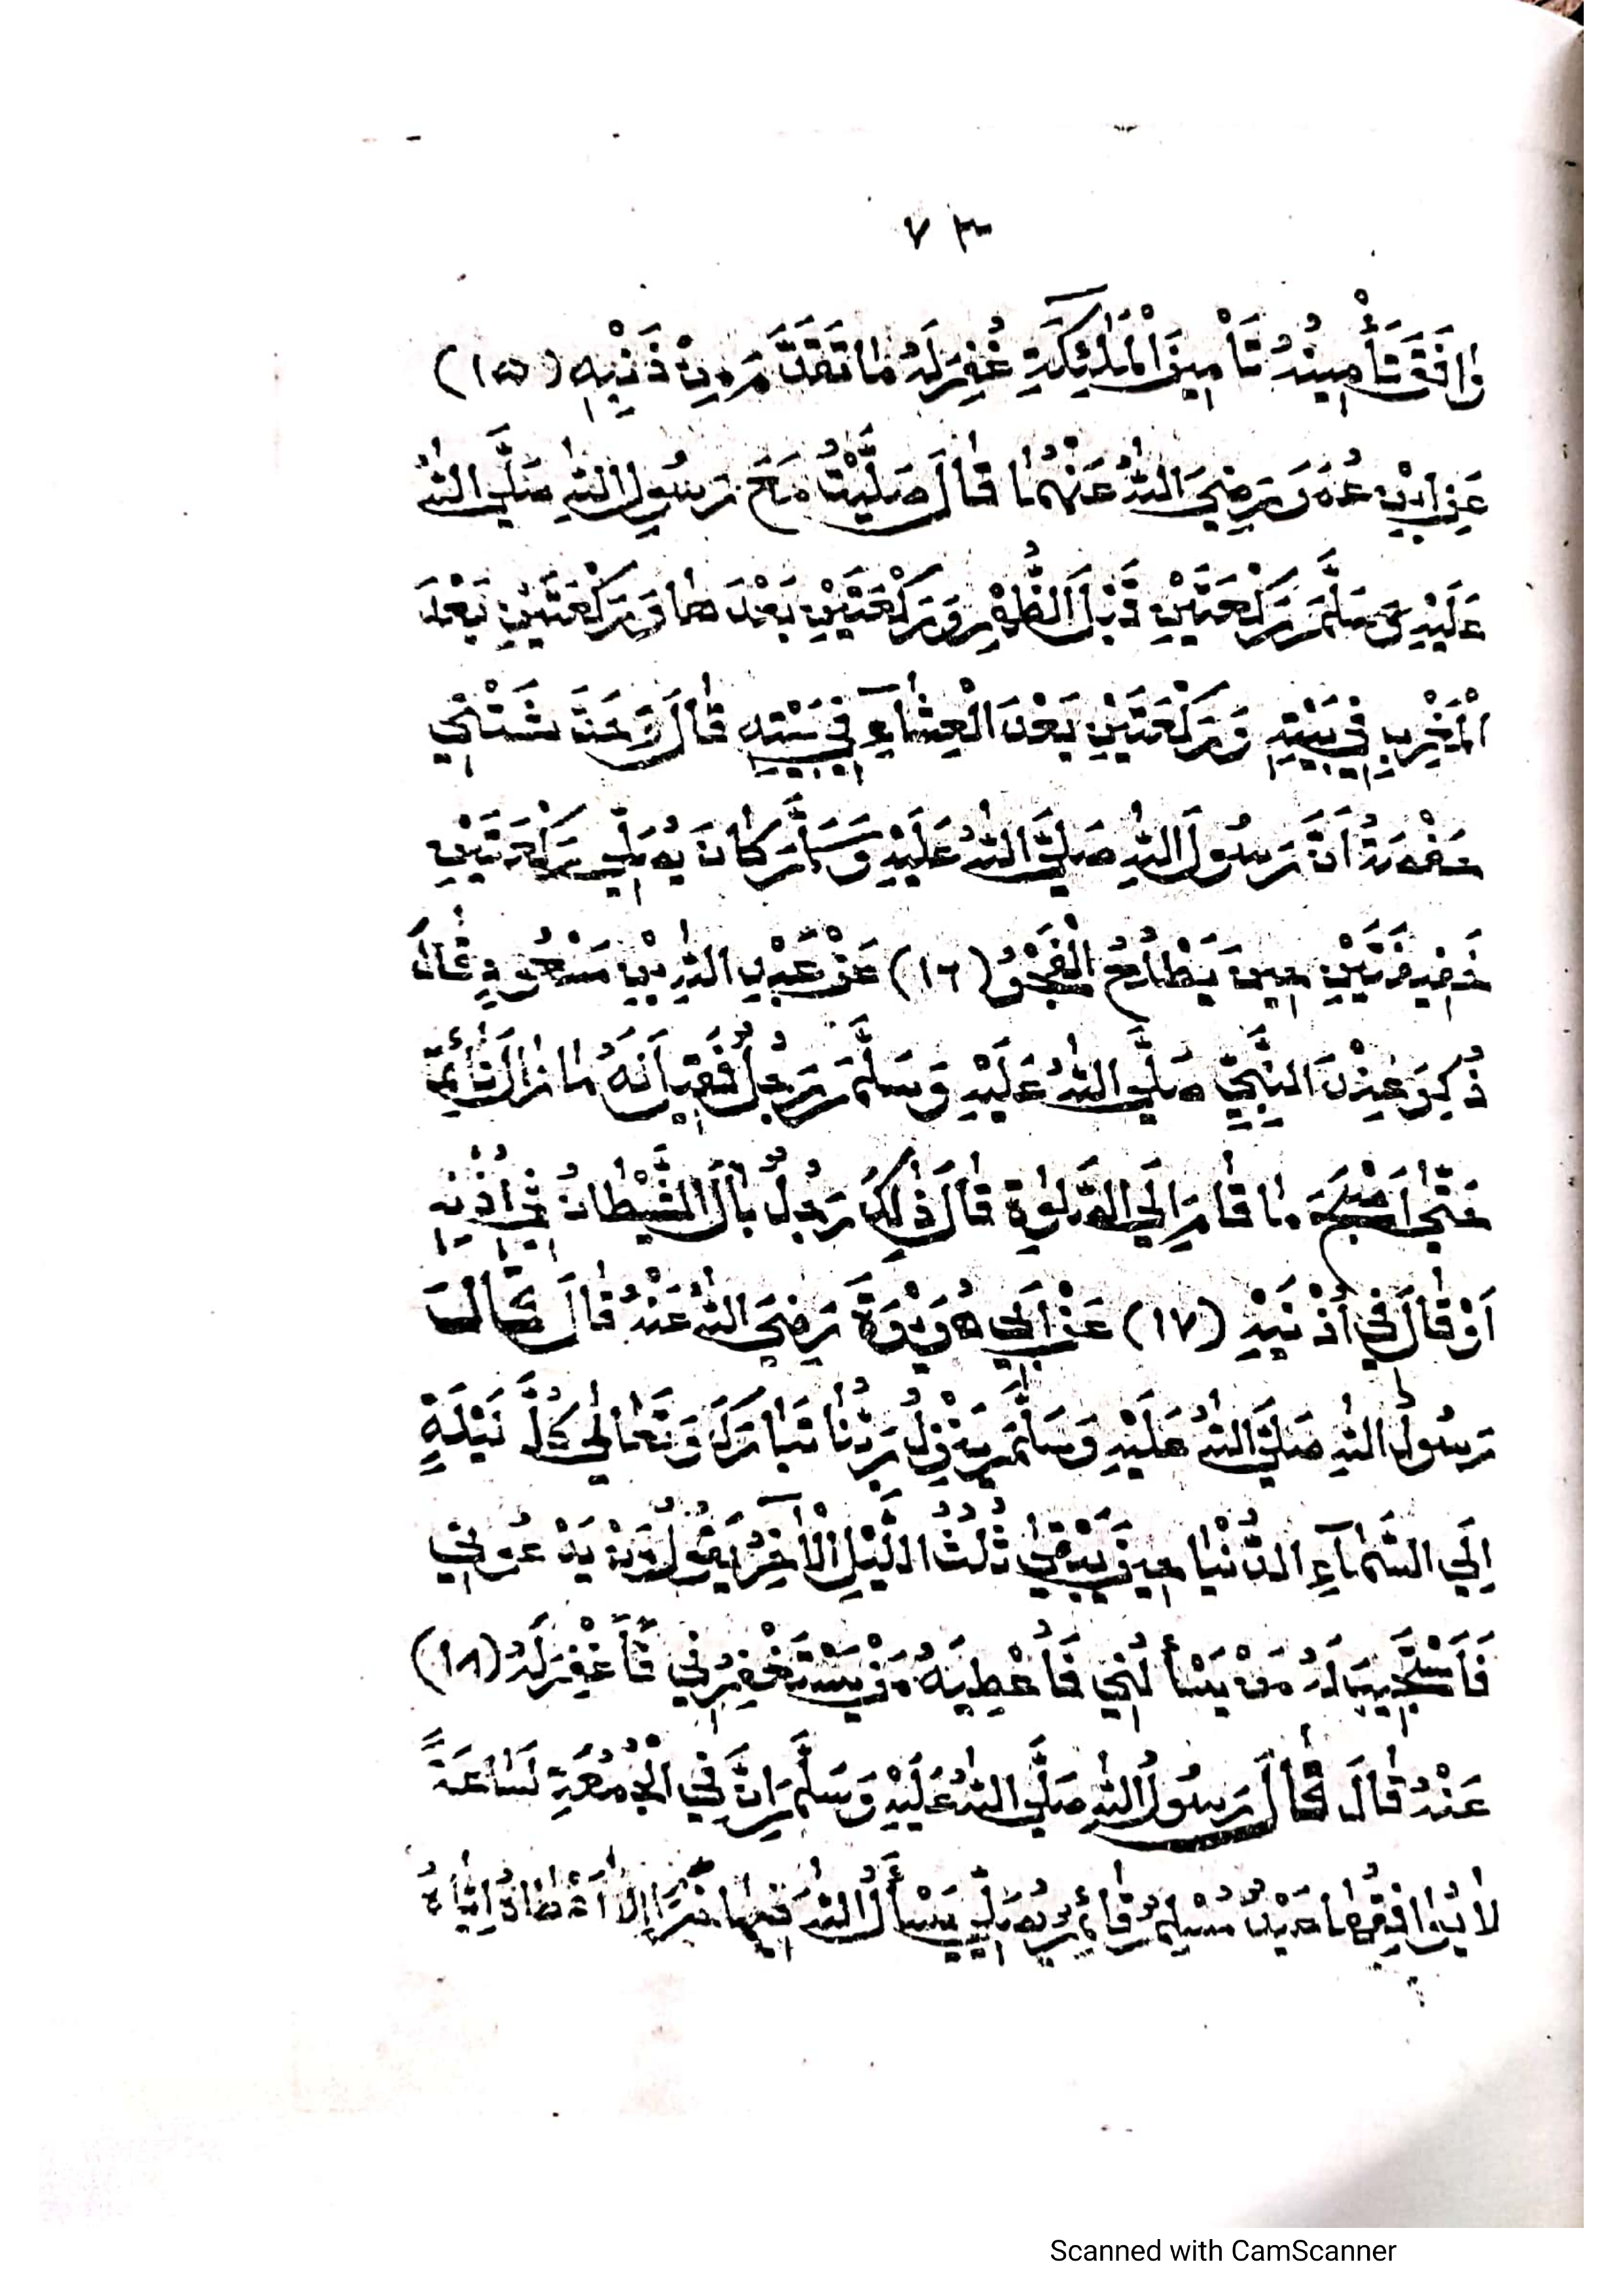 ٧٣
وَافَقَ تَأْمِينُهُ تَأْمِينَ الْمَلٰئِكَةِ غُفِرَ لَهُ مَا تَقَدَّمَ مِنْ ذَنْبِهِ (١٥)
عَنِ ابْنِ عُمَرَ رَضِيَ اللهُ عَنْهُمَا قَالَ صَلَّيْتُ مَعَ رَسُولِ اللهِ صَلَّي اللهُ
عَلَيْهِ وَسَلَّمَ رَكْعَتَيْنِ قَبْلَ الظُّهْرِ وَرَكْعَتَيْنِ بَعْدَهَا وَرَكْعَتَيْنِ بَعْدَ
الْمَغْرِبِ فِي بَيْتِهِ وَرَكْعَتَيْنِ بَعْدَ الْعِشَآءِ فِي بَيْتِهِ قَالَ وَحَدَّثَتْنِي
حَفْصَةُ اَنَّ رَسُولَ اللهِ صَلَّي اللهُ عَلَيْهِ وَسَلَّمَ كَانَ يُصَلِّي رَكْعَتَيْنِ
خَفِيفَتَيْنِ حِينَ يَطْلُعُ الْفَجْرُ (١٦) عَنْ عَبْدِ اللهِ بْنِ مَسْعُودٍ قَالَ
ذُكِرَ عِنْدَ النَّبِيِّ صَلَّي اللهُ عَلَيْهِ وَسَلَّمَ رَجُلٌ فَقِيلَ اَنَّهُ مَا زَالَ نَائِمًا
حَتّٰي اَصْبَحَ مَا قَامَ اِلَي الصَّلٰوةِ قَالَ ذٰلِكَ رَجُلٌ بَالَ الشَّيْطَانُ فِي اُذُنِهِ
اَوْ قَالَ فِي اُذْنَيْهِ (١٧) عَنْ اَبِي هُرَيْرَةَ رَضِيَ اللهُ عَنْهُ قَالَ قَالَ
رَسُولُ اللهِ صَلَّي اللهُ عَلَيْهِ وَسَلَّمَ يَنْزِلُ رَبُّنَا تَبَارَكَ وَتَعَالٰي كُلَّ لَيْلَةٍ
اِلَي السَّمَآءِ الدُّنْيَا حِينَ يَبْقٰي ثُلُثُ اللَّيْلِ الْاٰخِرُ يَقُولُ مَنْ يَدْعُونِي
فَاَسْتَجِيبَ لَهُ مَنْ يَسْأَلُنِي فَاُعْطِيَهُ مَنْ يَسْتَغْفِرُنِي فَاَغْفِرَ لَهُ (١٨)
عَنْهُ قَالَ قَالَ رَسُولُ اللهِ صَلَّي اللهُ عَلَيْهِ وَسَلَّمَ اِنَّ فِي الْجُمُعَةِ لَسَاعَةً
لَا يُوَافِقُهَا عَبْدٌ مُسْلِمٌ قَائِمٌ يُصَلِّي يَسْأَلُ اللهَ فِيهَا خَيْرًا اِلَّا اَعْطَاهُ اِيَّاهُ
Scanned with CamScanner